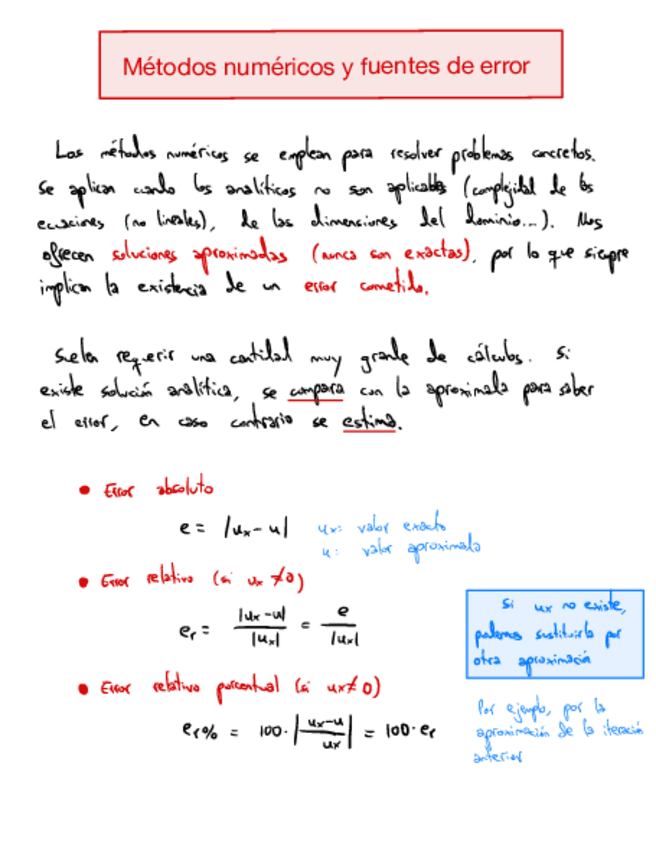 Métodos numéricos y fuentes de error
Los métodos numéricos se emplean para resolver problemas concretos.
Se aplican cuando los analíticos no son aplicables (complejidad de las
ecuaciones (no lineales), de las dimensiones del dominio...). Nos
ofrecen soluciones aproximadas (nunca son exactas), por lo que siempre
implican la existencia de un error cometido.
Suelen requerir una cantidad muy grande de cálculos. Si
existe solución analítica, se compara con la aproximada para saber
el error, en caso contrario se estima.
• Error absoluto
e = |ux - u| ux: valor exacto
u: valor aproximado
• Error relativo (si ux ≠ 0)
er = |ux - u| / |ux| = e / |ux|
Si ux no existe,
podemos sustituirlo por
otra aproximación
• Error relativo porcentual (si ux ≠ 0)
er% = 100 · |(ux - u) / ux| = 100 · er
Por ejemplo, por la
aproximación de la iteración
anterior